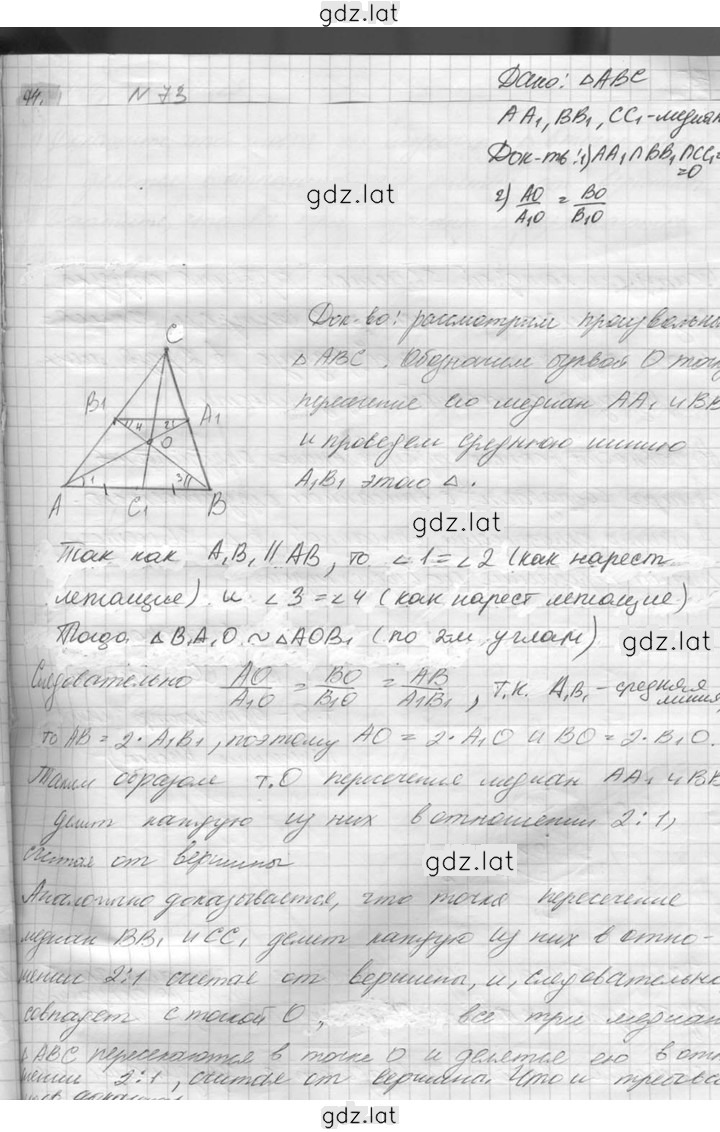 gdz.lat
44.
N 73
Дано: △ABC
AA₁, BB₁, CC₁ - медиан
Док-ть: 1) AA₁∩BB₁∩CC₁=
=O
2) AO/A₁O = BO/B₁O
gdz.lat
Док-во: рассмотрим произвольн
△ABC. Обозначим буквой O точк
пересечение его медиан AA₁ и BB
и проведем среднюю линию
A₁B₁ этого △.
C
B₁
A₁
4
2
O
1
3
A
C₁
B
gdz.lat
Так как A₁B₁ || AB, то ∠1=∠2 (как нарест
лежащие) и ∠3=∠4 (как нарест лежащие)
Тогда △B₁A₁O ~ △AOB₁ (по 2м углам)
gdz.lat
Следовательно AO/A₁O = BO/B₁O = AB/A₁B₁, т.к. A₁B₁ - средняя
линия,
то AB = 2·A₁B₁, поэтому AO = 2·A₁O и BO = 2·B₁O.
Таким образом т.O пересечение медиан AA₁ и BB
делит каждую из них в отношении 2:1,
считая от вершины
gdz.lat
Аналогично доказывается, что точка пересечение
медиан BB₁ и CC₁ делит каждую из них в отно-
шении 2:1 считая от вершины, и, следовательно
совпадет с точкой O, все три медиан
△ABC пересекаются в точке O и делятся ею в отн
шении 2:1, считая от вершины. Что и требова
gdz.lat